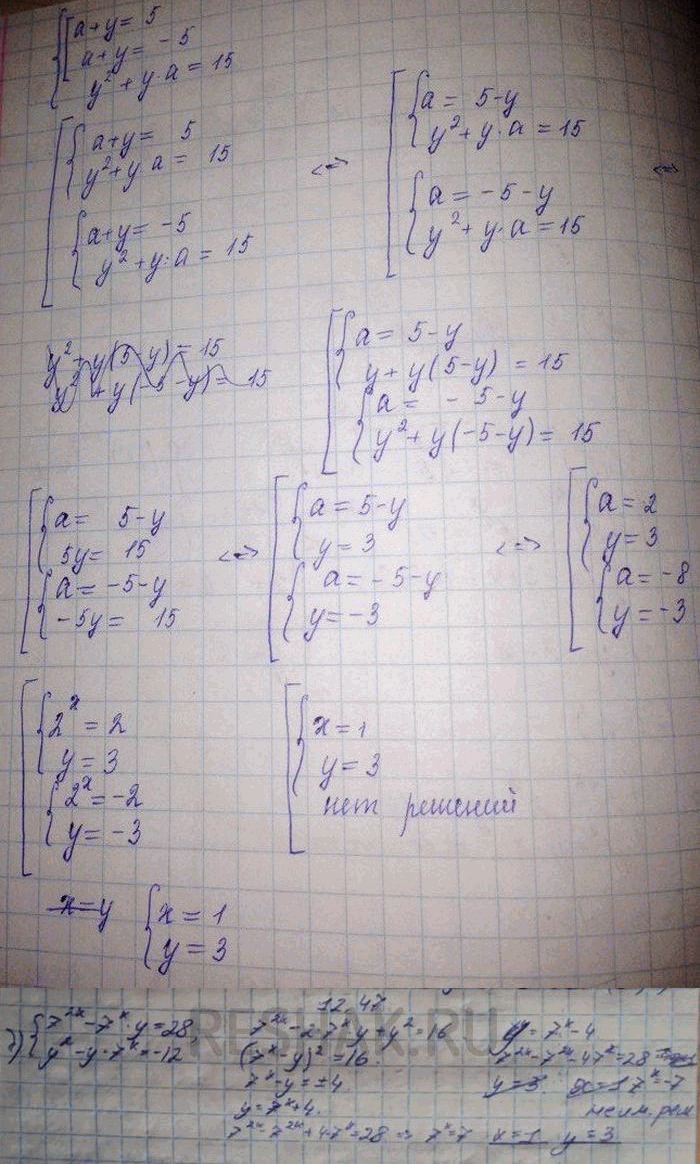 a+y= 5
a+y= -5
y²+y·a=15
a+y= 5
y²+y·a= 15
a+y= -5
y²+y·a= 15
<=>
a= 5-y
y²+y·a=15
a=-5-y
y²+y·a=15
<=>
y²+y(5-y)=15
y²+y(-5-y)= 15
a= 5-y
y+y(5-y) = 15
a= -5-y
y²+y(-5-y)= 15
a= 5-y
5y= 15
a=-5-y
-5y= 15
<=>
a=5-y
y=3
a=-5-y
y=-3
<=>
a=2
y=3
a=-8
y=-3
2ˣ=2
y=3
2ˣ=-2
y=-3
x=1
y=3
нет решений
x=y
x=1
y=3
12.47
RESHAK.RU
7²ˣ-7ˣ·y=28,
y²-y·7ˣ=-12
7²ˣ-2·7ˣy+y²=16
(7ˣ-y)²=16.
7ˣ-y=±4
y=7ˣ+4.
7²ˣ-7²ˣ+47ˣ=28 => 7ˣ=7 x=1 y=3
y=7ˣ-4
7²ˣ-7²ˣ-47ˣ=28
y=3 x=1 7ˣ=-7